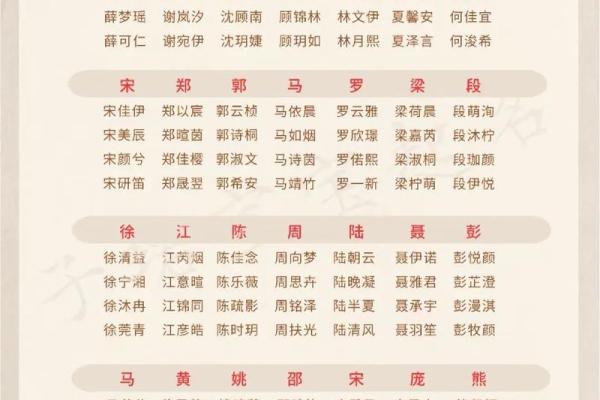 薛梦瑶 谢岚汐 沈顾南 顾锦林 林文伊 夏馨安 何佳宜
薛可仁 谢宛伊 沈玥婕 顾玥如 林月熙 夏泽言 何浚希
宋 郑 郭 马 罗 梁 段
宋佳伊 郑以宸 郭云桢 马依晨 罗云雅 梁荷晨 段萌洵
宋美辰 郑暄茵 郭诗桐 马如烟 罗欣璟 梁嘉芮 段沐柠
宋颜兮 郑佳樱 郭淑文 马诗茵 罗偌熙 梁淑桐 段珈颜
宋研笛 郑晟翌 郭希安 马靖竹 罗一新 梁柠萌 段伊悦
徐 江 陈 周 陆 聂 彭
徐清益 江芮烟 陈佳念 周向梦 陆朝云 聂伊诺 彭悦颜
徐宁湘 江意暄 陈乐薇 周思卉 陆晚凝 聂雅君 彭芷澄
徐沐冉 江锦同 陈疏影 周铭泽 陆半夏 聂承宇 彭漫淇
徐莞青 江彦皓 陈时玥 周扶光 陆清风 聂羽笙 彭牧颜
马 黄 姚 邵 宋 庞 熊